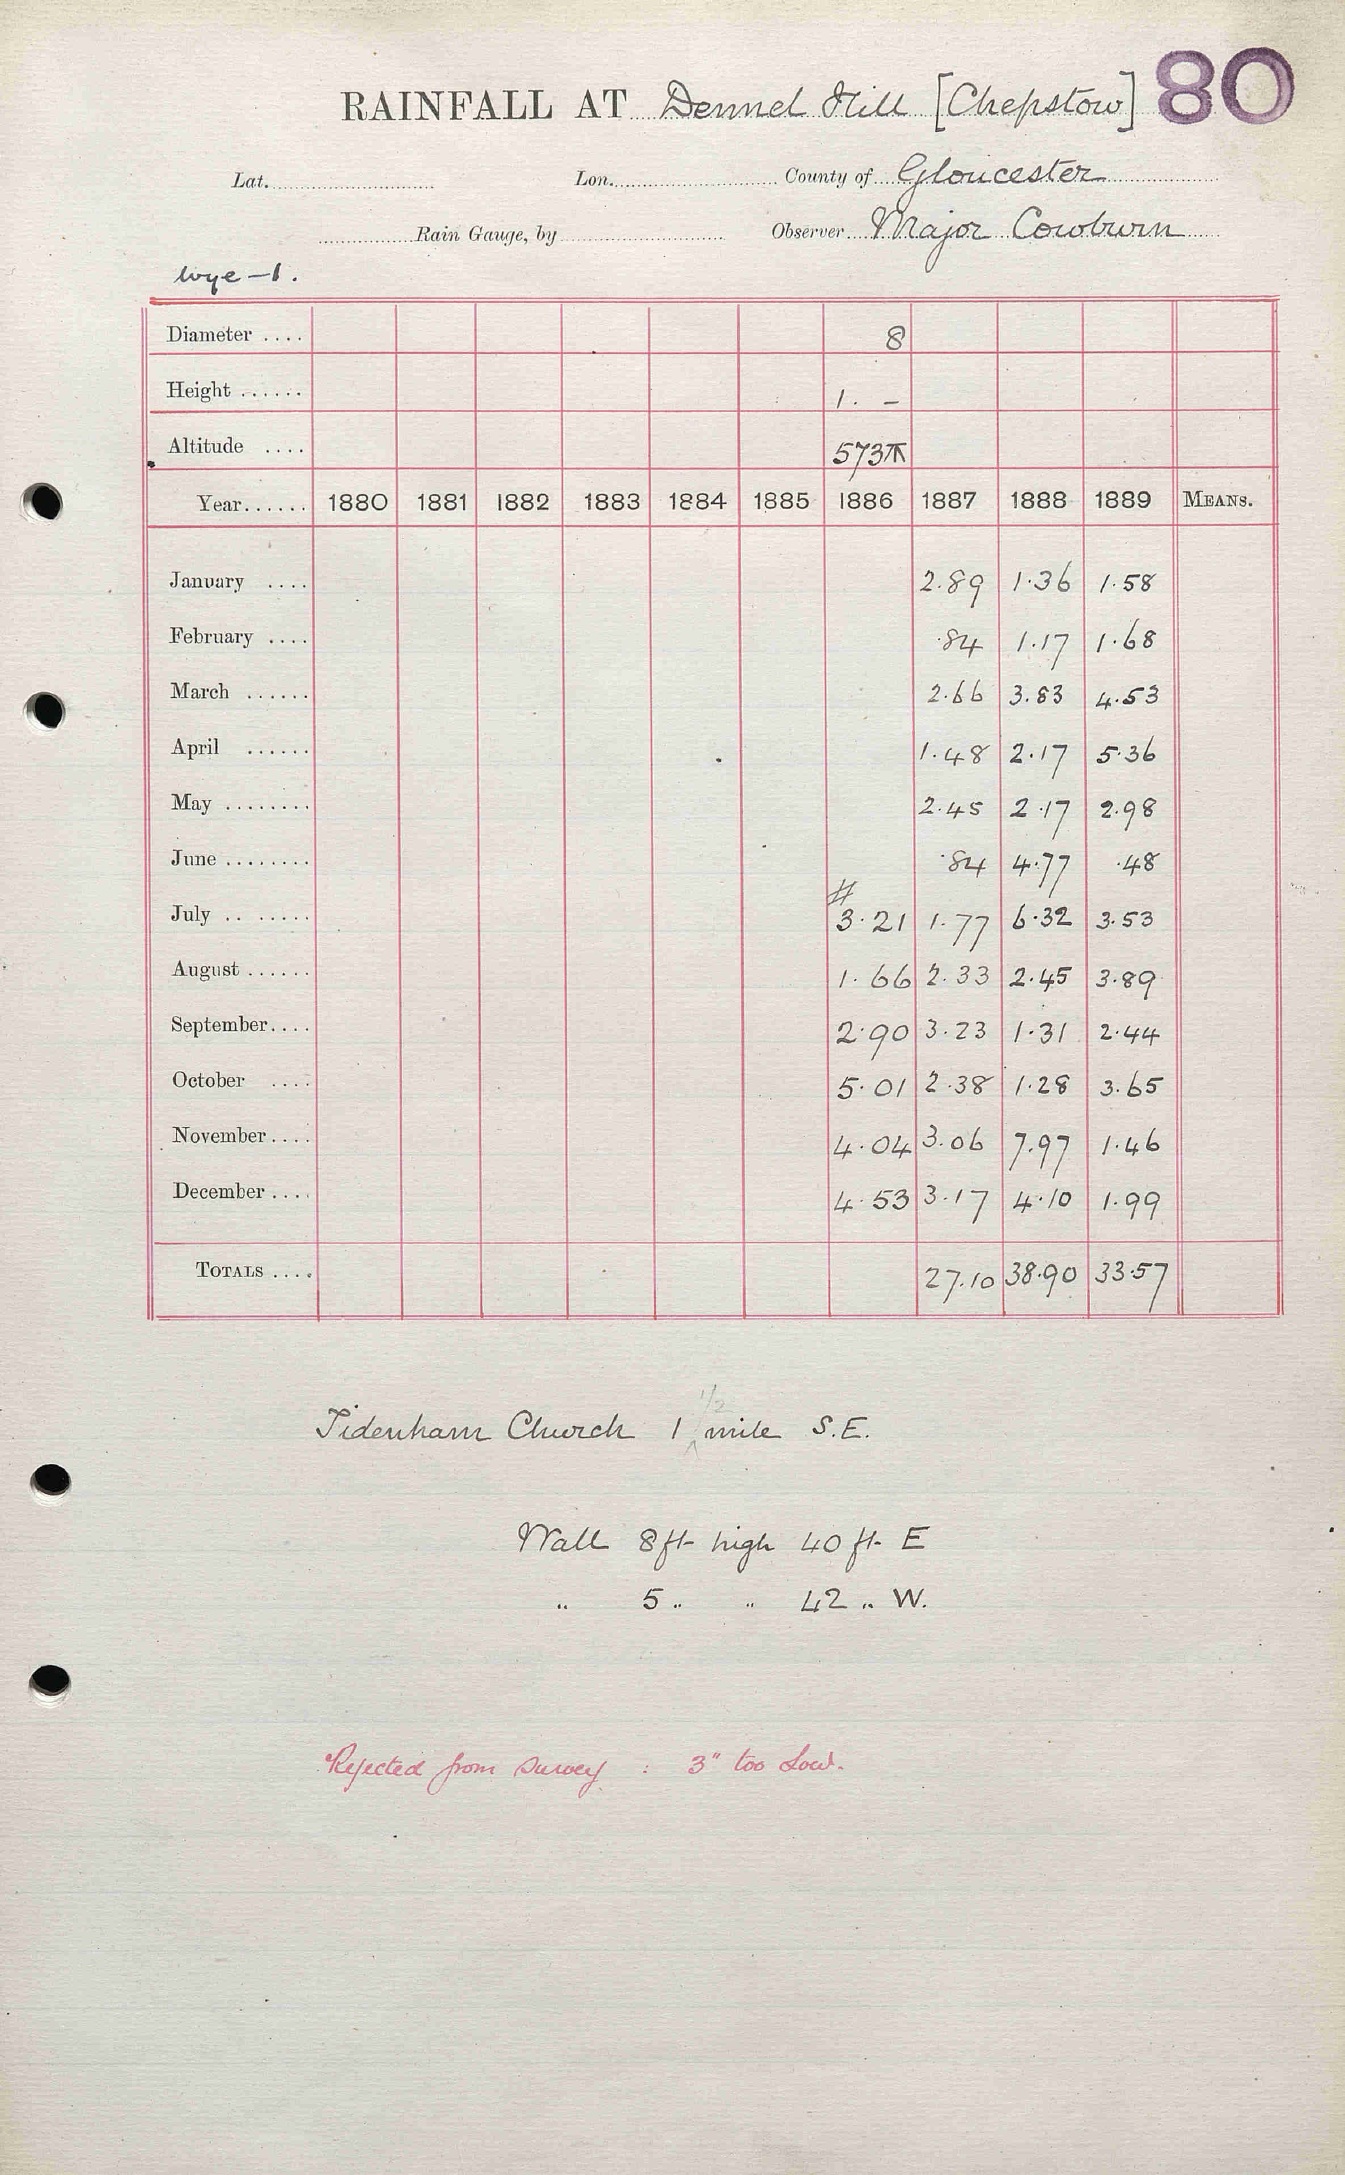 80
RAINFALL AT Dennel Hill [Chepstow]
Lat. Lon. County of Gloucester
Rain Gauge, by Observer Major Cowburn
Wye – 1.
Diameter .... 8
Height ...... 1. –
Altitude .... 573
Year...... 1880 1881 1882 1883 1884 1885 1886 1887 1888 1889 MEANS.
January .... 2.89 1.36 1.58
February .... .84 1.17 1.68
March ...... 2.66 3.83 4.53
April ...... 1.48 2.17 5.36
May ........ 2.45 2.17 2.98
June ........ .84 4.77 .48
#
July .. ..... 3.21 1.77 6.32 3.53
August ...... 1.66 2.33 2.45 3.89
September.... 2.90 3.23 1.31 2.44
October .... 5.01 2.38 1.28 3.65
November.... 4.04 3.06 7.97 1.46
December .... 4.53 3.17 4.10 1.99
TOTALS .... 27.10 38.90 33.57
Tidenham Church 1 1/2 mile S.E.
Wall 8 ft high 40 ft. E
„ 5 „ „ 42 „ W.
Rejected from Survey : 3" too low.